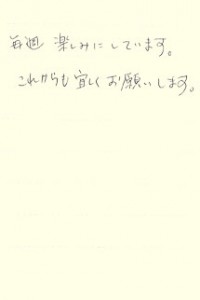 毎週 楽しみにしています。
これからも宜しくお願いします。